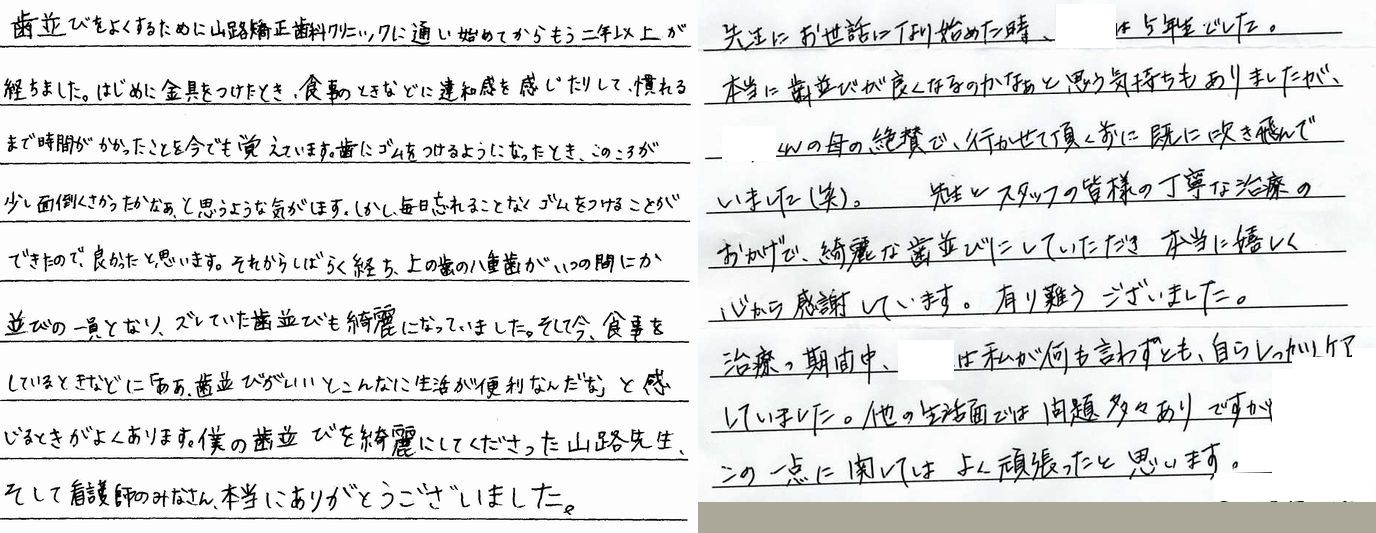 歯並びをよくするために山路矯正歯科クリニックに通い始めてからもう二年以上が
経ちました。はじめに金具をつけたとき、食事のときなどに違和感を感じたりして、慣れる
まで時間がかかったことを今でも覚えています。歯にゴムをつけるようになったとき、このころが
少し面倒くさかったかなぁ、と思うような気がします。しかし、毎日忘れることなくゴムをつけることが
できたので、良かったと思います。それからしばらく経ち、上の歯の八重歯がいつの間にか
並びの一員となり、ズレていた歯並びも綺麗になっていました。そして今、食事を
しているときなどに「ああ、歯並びがいいとこんなに生活が便利なんだな」と感
じるときがよくあります。僕の歯並びを綺麗にしてくださった山路先生、
そして看護師のみなさん、本当にありがとうございました。
先生にお世話になり始めた時、は5年生でした。
本当に歯並びが良くなるのかなぁと思う気持ちもありましたが、
くんの母の絶賛で、行かせて頂く前に既に吹き飛んで
いました(笑)。 先生とスタッフの皆様の丁寧な治療の
おかげで、綺麗な歯並びにしていただき本当に嬉しく
心から感謝しています。有り難うございました。
治療の期間中、は私が何も言わずとも、自らしっかりケア
していました。他の生活面では問題多々ありですが
この一点に関してはよく頑張ったと思います。